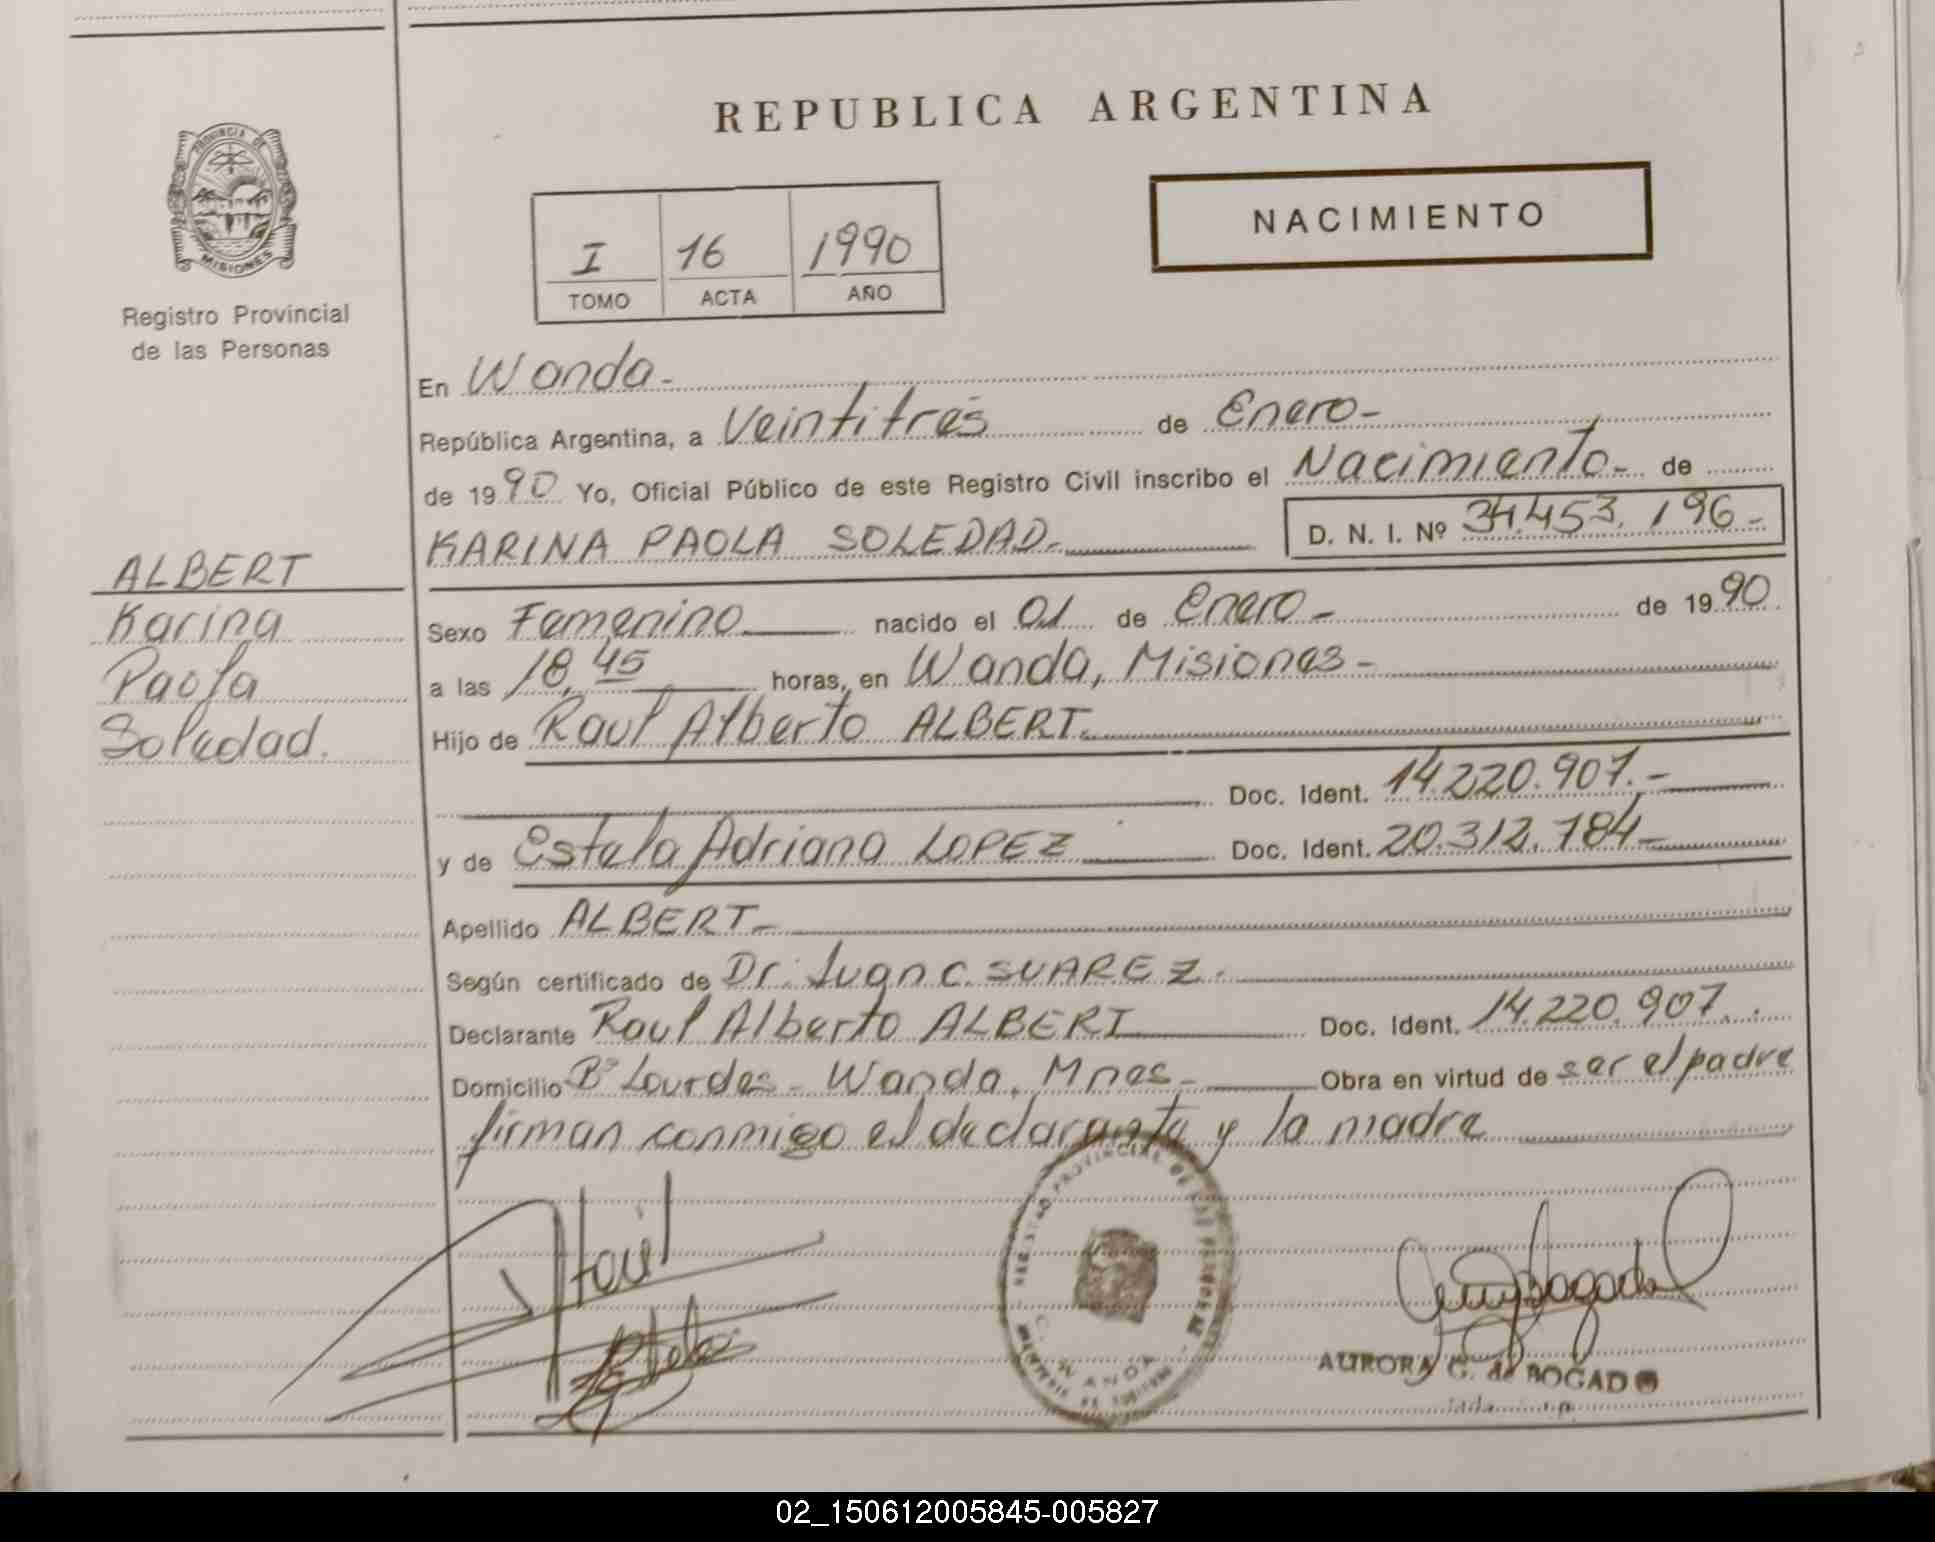 REPUBLICA ARGENTINA
PROVINCIA DE
MISIONES
Registro Provincial
de las Personas
NACIMIENTO
I 16 1990
TOMO ACTA AÑO
En Wanda-
República Argentina, a Veintitrés de Enero-
de 1990 Yo, Oficial Público de este Registro Civil inscribo el Nacimiento- de
KARINA PAOLA SOLEDAD- D. N. I. Nº 34.453.196-
ALBERT
Karina
Paola
Soledad.
Sexo Femenino nacido el 01 de Enero- de 1990
a las 18,45 horas, en Wanda, Misiones-
Hijo de Raul Alberto ALBERT.
Doc. Ident. 14.220.907.-
y de Estela Adriana LOPEZ Doc. Ident. 20.312.784-
Apellido ALBERT-
Según certificado de Dr. Juan C. SUAREZ.
Declarante Raul Alberto ALBERT Doc. Ident. 14.220.907.
Domicilio Bº Lourdes- Wanda, Mnes- Obra en virtud de ser el padre
firman conmigo el declarante y la madre
REGISTRO PROVINCIAL DE LAS PERSONAS
WANDA
AURORA G. de BOGADO
02_150612005845-005827